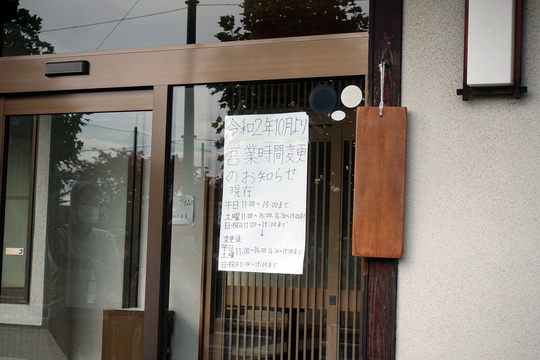 令和2年10月より
営業時間変更
のお知らせ
現在
平日11:00~15:00まで
土曜11:00~15:00, 16:30~19:00まで
日・祝日11:00~19:00まで
↓
変更後
平日
土曜 11:00~15:00, 16:30~19:00まで
日・祝日11:00~19:00まで